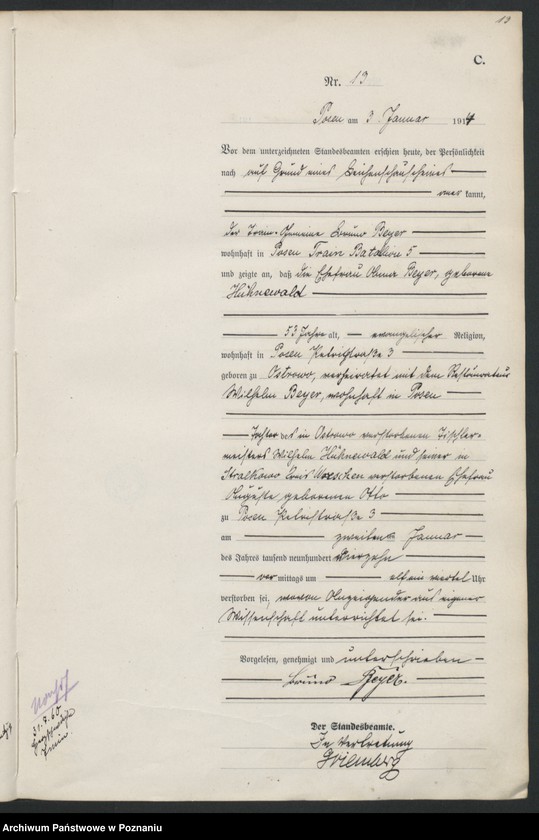 13
C.
Nr. 13
Posen am 3 Januar 1914
Vor dem unterzeichneten Standesbeamten erschien heute, der Persönlichkeit
nach auf Grund eines Leichenschauscheines
aner kannt,
der Train-Gemeine Bruno Beyer
wohnhaft in Posen Train Batallion 5
und zeigte an, daß die Ehefrau Anna Beyer, geborene
Hühnewald
53 Jahre alt, evangelischer Religion,
wohnhaft in Posen Petristraße 3
geboren zu Ostrowo, verheiratet mit dem Restaurateur
Wilhelm Beyer, wohnhaft in Posen
Tochter des in Ostrowo verstorbenen Tischler-
meisters Wilhelm Hühnewald und seiner in
Stralkowo Kreis Wreschen verstorbenen Ehefrau
Auguste geborenen Otto
zu Posen Petristraße 3
am zweiten Januar
des Jahres tausend neunhundert vierzehn
vor mittags um elf ein viertel Uhr
verstorben sei, wovon Anzeigender aus eigener
Wissenschaft unterrichtet sei.
Vorgelesen, genehmigt und unterschrieben
Bruno Beyer.
Der Standesbeamte.
In Vertretung
31.7.60
Archiwum Państwowe w Poznaniu